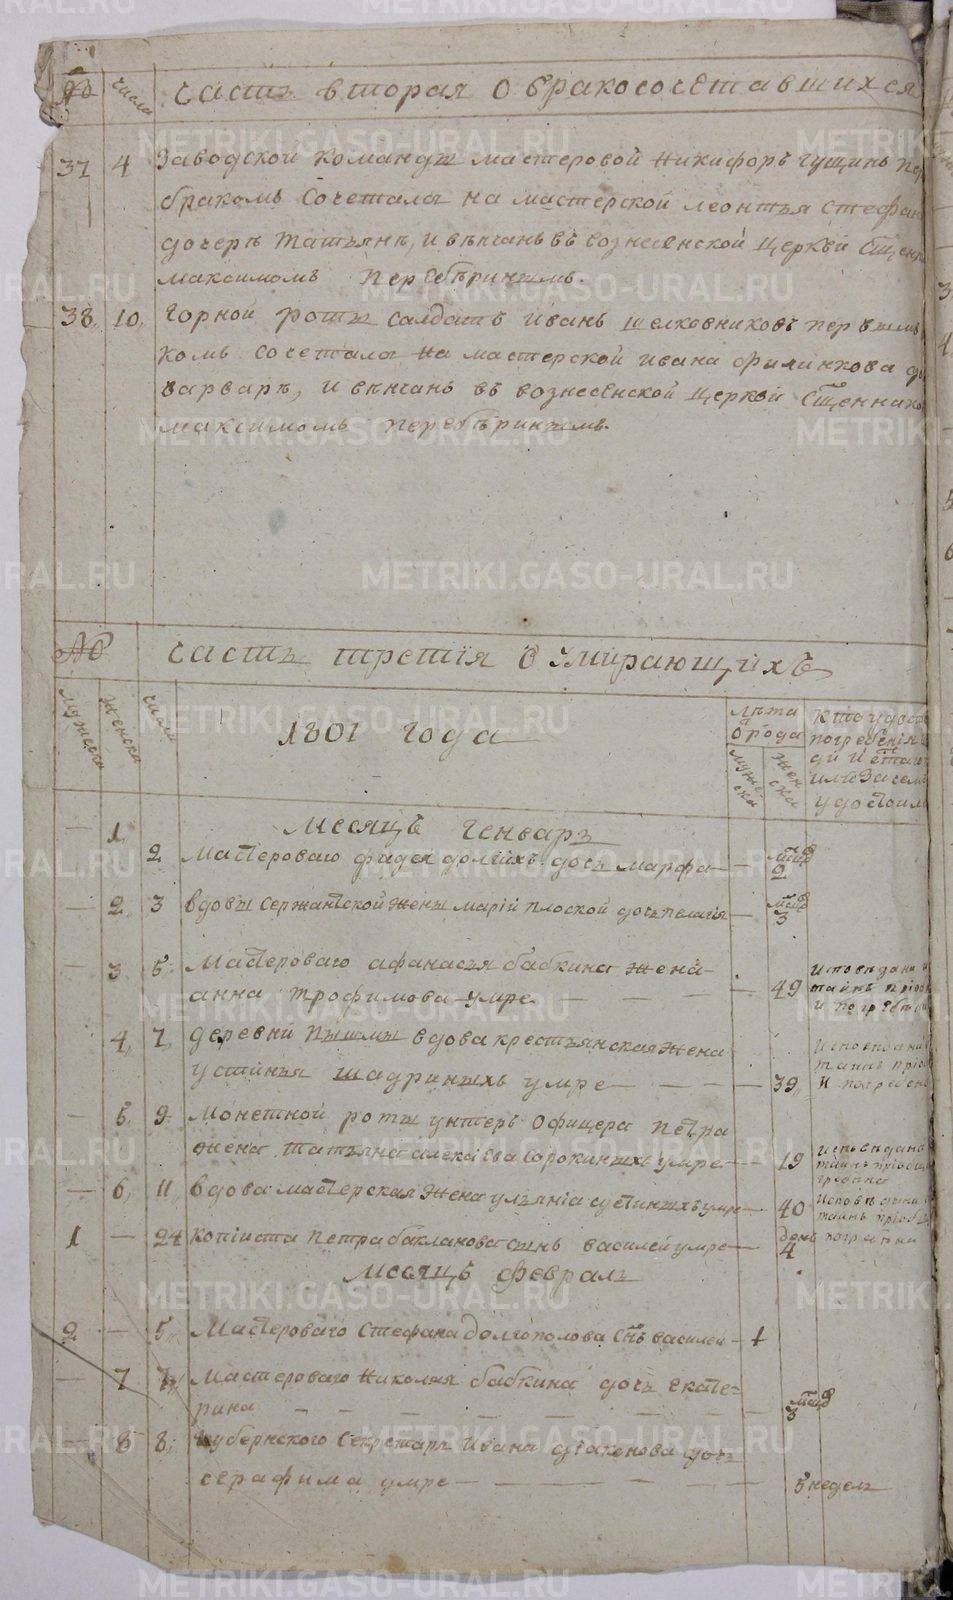 № числа часть вторая о бракосочетавшихся
37 4 Заводской команды мастеровой Никифоръ Гущинъ пер
бракомъ сочетался на мастерской Леонтья Стефан
дочерѣ Татьянѣ, и вѣнчанъ въ вознесенской Церкви Сщенн
Максимомъ Перебѣринымъ.
38. 10, Горной роты салдатъ Иванъ Шелковниковъ первымъ
комъ сочетался на мастерской Ивана Филинкова до
варварѣ, и вѣнчанъ въ вознесенской церкви Сщенникомъ
Максимомъ Перебѣринымъ.
№ часть третія о умирающихъ
мужеска женска числа 1801 года лѣта от рода мужеска женска
кто
погребенія
Месяцъ Генварь
— 1, 2 Мастероваго Фадея долгихъ дочь марфа — мѣсяцъ 2
— 2, 3 вдовы сержантской жены маріи плоской дочь пелагія — мѣсяцъ 3
— 3, 5, Мастероваго афанасья бабкина жена
анна трофимова умре — — — — 49 Исповѣдана и
тайнъ пріобщ
и погребена
4, 7, деревни Пышмы вдова крестьянская жена
устинья шадриныхъ умре — — — 39, Исповѣдана
тайнъ пріоб
и погребена
— 5, 9 Монетной роты унтеръ офицера Петра
жена татьяна алексѣева сорокиныхъ умре — 19 исповѣдана
тайнъ пріобщ
гребена
— 6, 11, вдова мастерская жена ульянія сустиныхъ умре — 40 Исповѣдана
тайнъ пріобщ
погребена
1 — 24 копіиста петра бакланова сынъ василей умре — день 4
Месяцъ февраль
2 — 5, Мастероваго Стефана Долгополова Снъ василей — 1
— 7 7, Мастероваго Николая бабкина дочь екате-
рина — — — — — мѣсяц 3
— 8 8, Губернского Секретаря Ивана дьяконова дочь
серафима умре — — — — 5 недель
METRIKI.GASO-URAL.RU